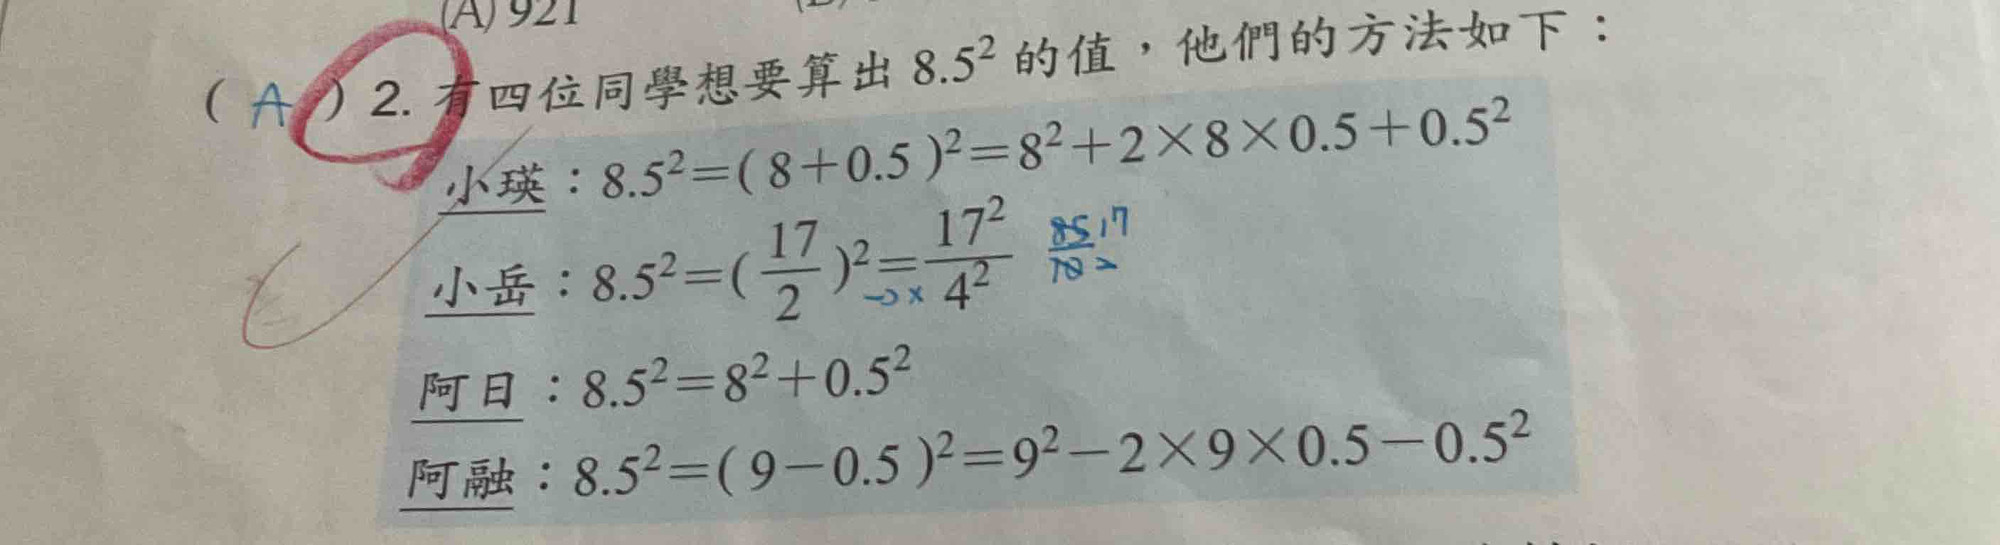 (A) 921
( A ) 2. 有四位同學想要算出 8.5² 的值，他們的方法如下：
小瑛：8.5²=( 8+0.5 )²=8²+2×8×0.5+0.5²
小岳：8.5²=(17/2)²=17²/4² 85/10 17/2
阿日：8.5²=8²+0.5²
阿融：8.5²=( 9−0.5 )²=9²−2×9×0.5−0.5²